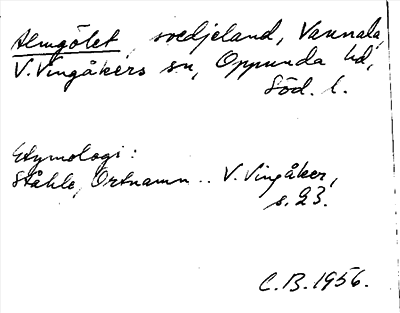 Almgölet, svedjeland, Vannala,
V. Vingåkers sn, Oppunda hd,
Söd. l.
Etymologi:
Ståhle, Ortnamn.. V. Vingåker,
s. 23.
C.B. 1956.